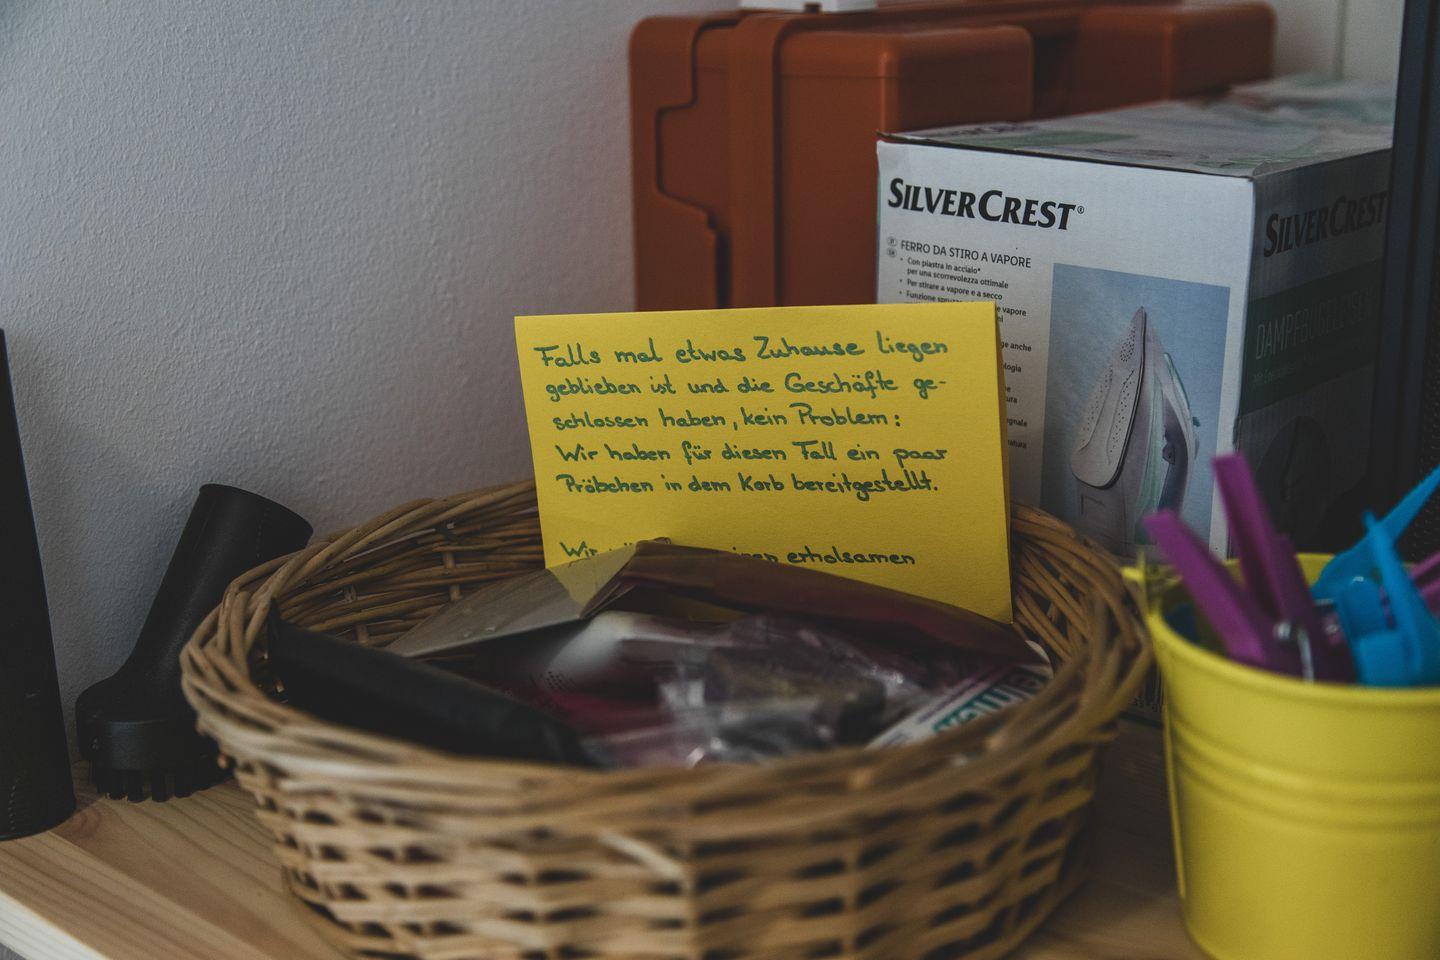 Falls mal etwas Zuhause liegen
geblieben ist und die Geschäfte ge-
schlossen haben, kein Problem:
Wir haben für diesen Fall ein paar
Pröbchen in dem Korb bereitgestellt.
Wir erholsamen
SILVERCREST®
FERRO DA STIRO A VAPORE
• Con piastra in acciaio*
per una scorrevolezza ottimale
• Per stirare a vapore e a secco
• Funzione vapore
anche
SILVERCREST